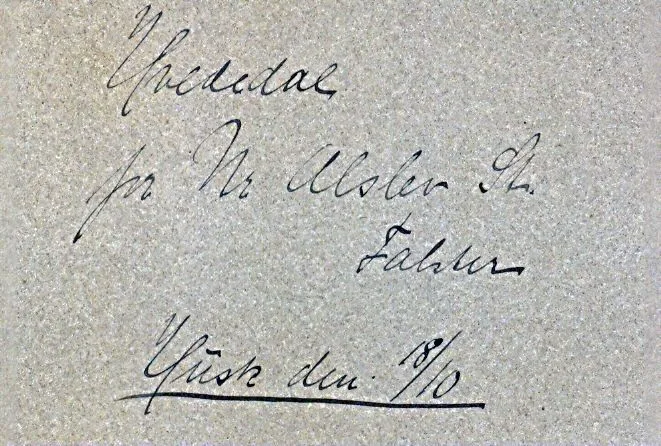 Hvededal
pr Nr Alslev St.
Falster
Husk den 18/10